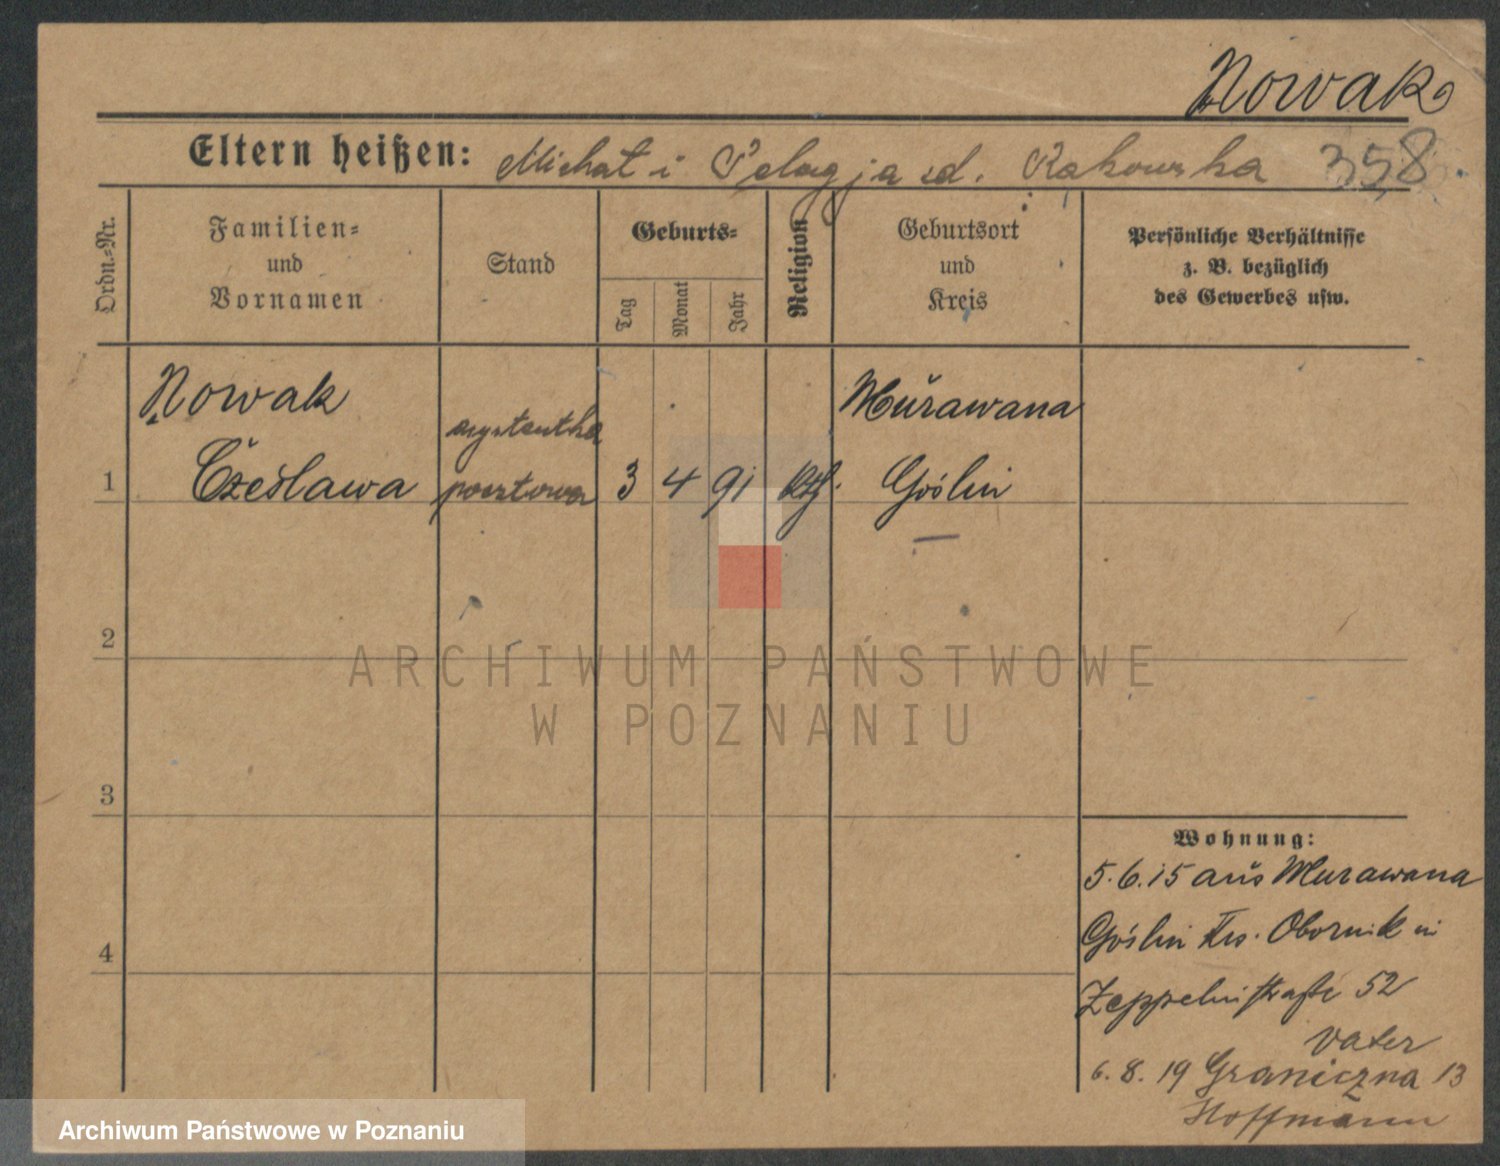 Nowak
Eltern heißen: Michał i Pelagja zd. Rakowska 358
Ordn.-Nr.
Familien-
und
Vornamen
Stand
Geburts-
Tag
Monat
Jahr
Religion
Geburtsort
und
Kreis
Persönliche Verhältnisse
z. B. bezüglich
des Gewerbes usw.
Nowak
Czesława
asystentka
pocztowa
1
3 4 91 kth.
Murawana
Goślin
2
3
4
Wohnung:
5.6.15 aus Murawana
Goślin Krs. Obornik in
Zeppelinstraße 52
Vater
6.8.19 Graniczna 13
Hoffmann
ARCHIWUM PAŃSTWOWE
W POZNANIU
Archiwum Państwowe w Poznaniu